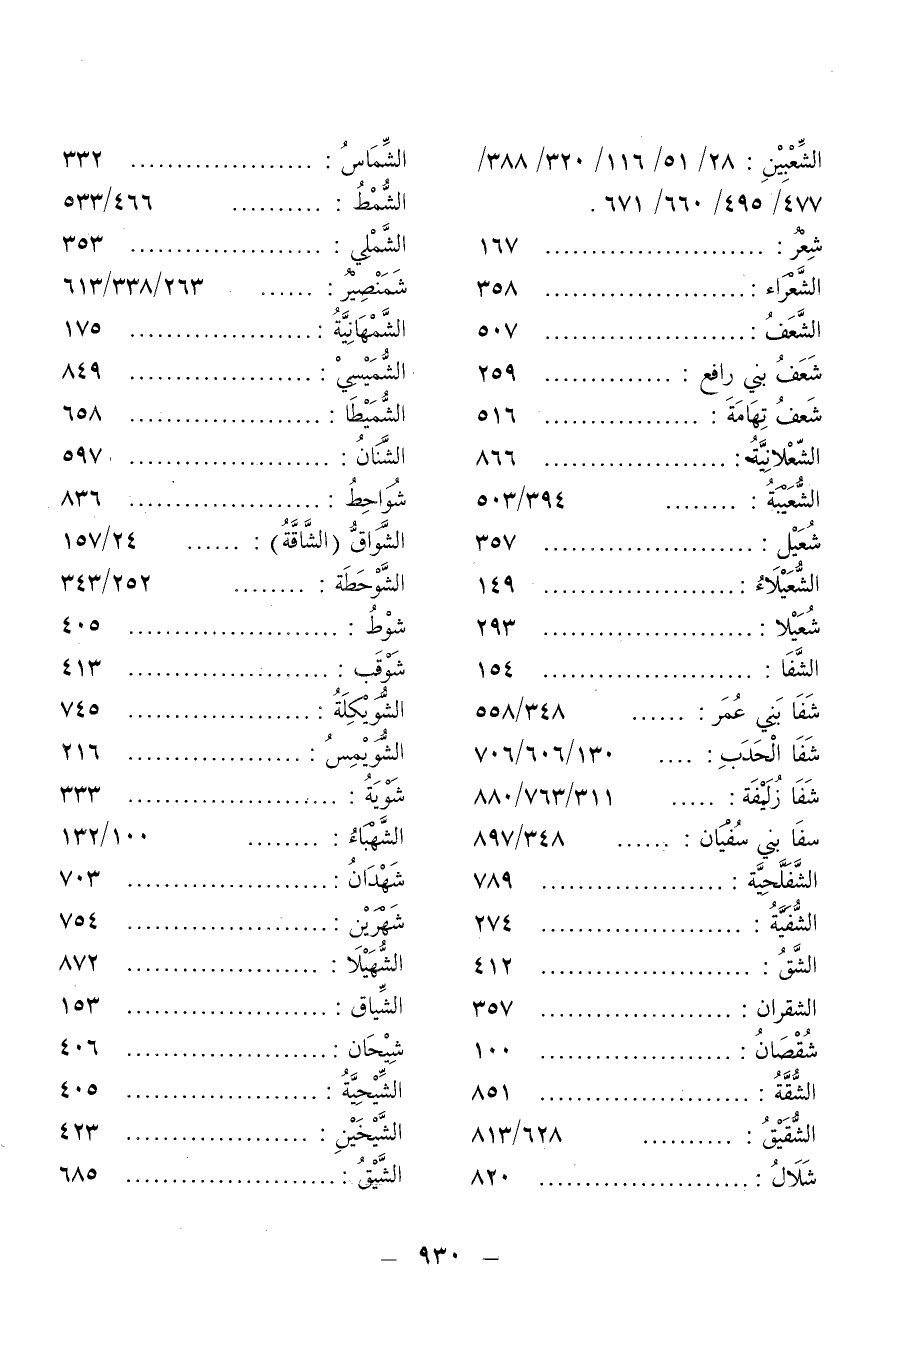 الشِّعْبِيْنِ : ٢٨/ ٥١/ ١١٦/ ٣٢٠/ ٣٨٨/
٤٧٧/ ٤٩٥/ ٦٦٠/ ٦٧١ .
شِعِرٌ : ........................ ١٦٧
الشَّعْرَاء : ...................... ٣٥٨
الشَّعَفُ : ...................... ٥٠٧
شَعَفُ بَنِي رافِع : .............. ٢٥٩
شَعفُ تِهَامَةَ : ................. ٥١٦
الشّعْلانِيَّةُ : .................... ٨٦٦
الشُّعَيْبَةُ : ........ ٥٠٣/٣٩٤
شُعَيْل : ....................... ٣٥٧
الشُّعَيْلَاءُ : ..................... ١٤٩
شُعَيْلا : ....................... ٢٩٣
الشَّفَا : ....................... ١٥٤
شَفَا بَنِي عُمَر : ...... ٥٥٨/٣٤٨
شَفَا الْحَدَبِ : .... ٧٠٦/٦٠٦/١٣٠
شَفَا زُلَيْفَة : ..... ٨٨٠/٧٦٣/٣١١
سفَا بني سُفْيَان : ...... ٨٩٧/٣٤٨
الشَّفَلَّحِيَّة : .................... ٧٨٩
الشُّفَيَّةُ : ...................... ٢٧٤
الشَّقُّ : ....................... ٤١٢
الشقران : ..................... ٣٥٧
شُقْصَانُ : ..................... ١٠٠
الشُّقَّةُ : ....................... ٨٥١
الشُّقَيْقُ : .......... ٨١٣/٦٢٨
شَلَالُ : ....................... ٨٢٠
الشِّمَاسُ : .................... ٣٣٢
الشُّمْطُ : .......... ٥٣٣/٤٦٦
الشَّمْلي : ..................... ٣٥٣
شَمَنْصِيْرُ : ...... ٦١٣/٣٣٨/٢٦٣
الشَّمْهَانِيَّةُ : .................... ١٧٥
الشُّمَيْسِيْ : .................... ٨٤٩
الشُّمَيْطَا : ..................... ٦٥٨
الشَّنَانُ : ...................... ٥٩٧
شُوَاحِطُ : ..................... ٨٣٦
الشَّوَاقُّ (الشَّاقَّةُ) : ...... ١٥٧/٢٤
الشَّوْحَطَة : ........ ٣٤٣/٢٥٢
شوْطُ : ....................... ٤٠٥
شَوْقَب : ...................... ٤١٣
الشُّوَيْكِلَةُ : .................... ٧٤٥
الشُّوَيْمِسُ : ................... ٢١٦
شَوْيَةُ : ....................... ٣٣٣
الشَّهْبَاءُ : ........ ١٣٢/١٠٠
شَهْدَانُ : ...................... ٧٠٣
شَهْرَيْن : ...................... ٧٥٤
الشُّهَيْلَا : ..................... ٨٧٢
الشِّياق : ...................... ١٥٣
شِيْحَان : ...................... ٤٠٦
الشِّيْحِيَّةُ : ..................... ٤٠٥
الشَّيْخَيْنِ : .................... ٤٢٣
الشَّيْقُ : ....................... ٦٨٥
– ٩٣٠ –